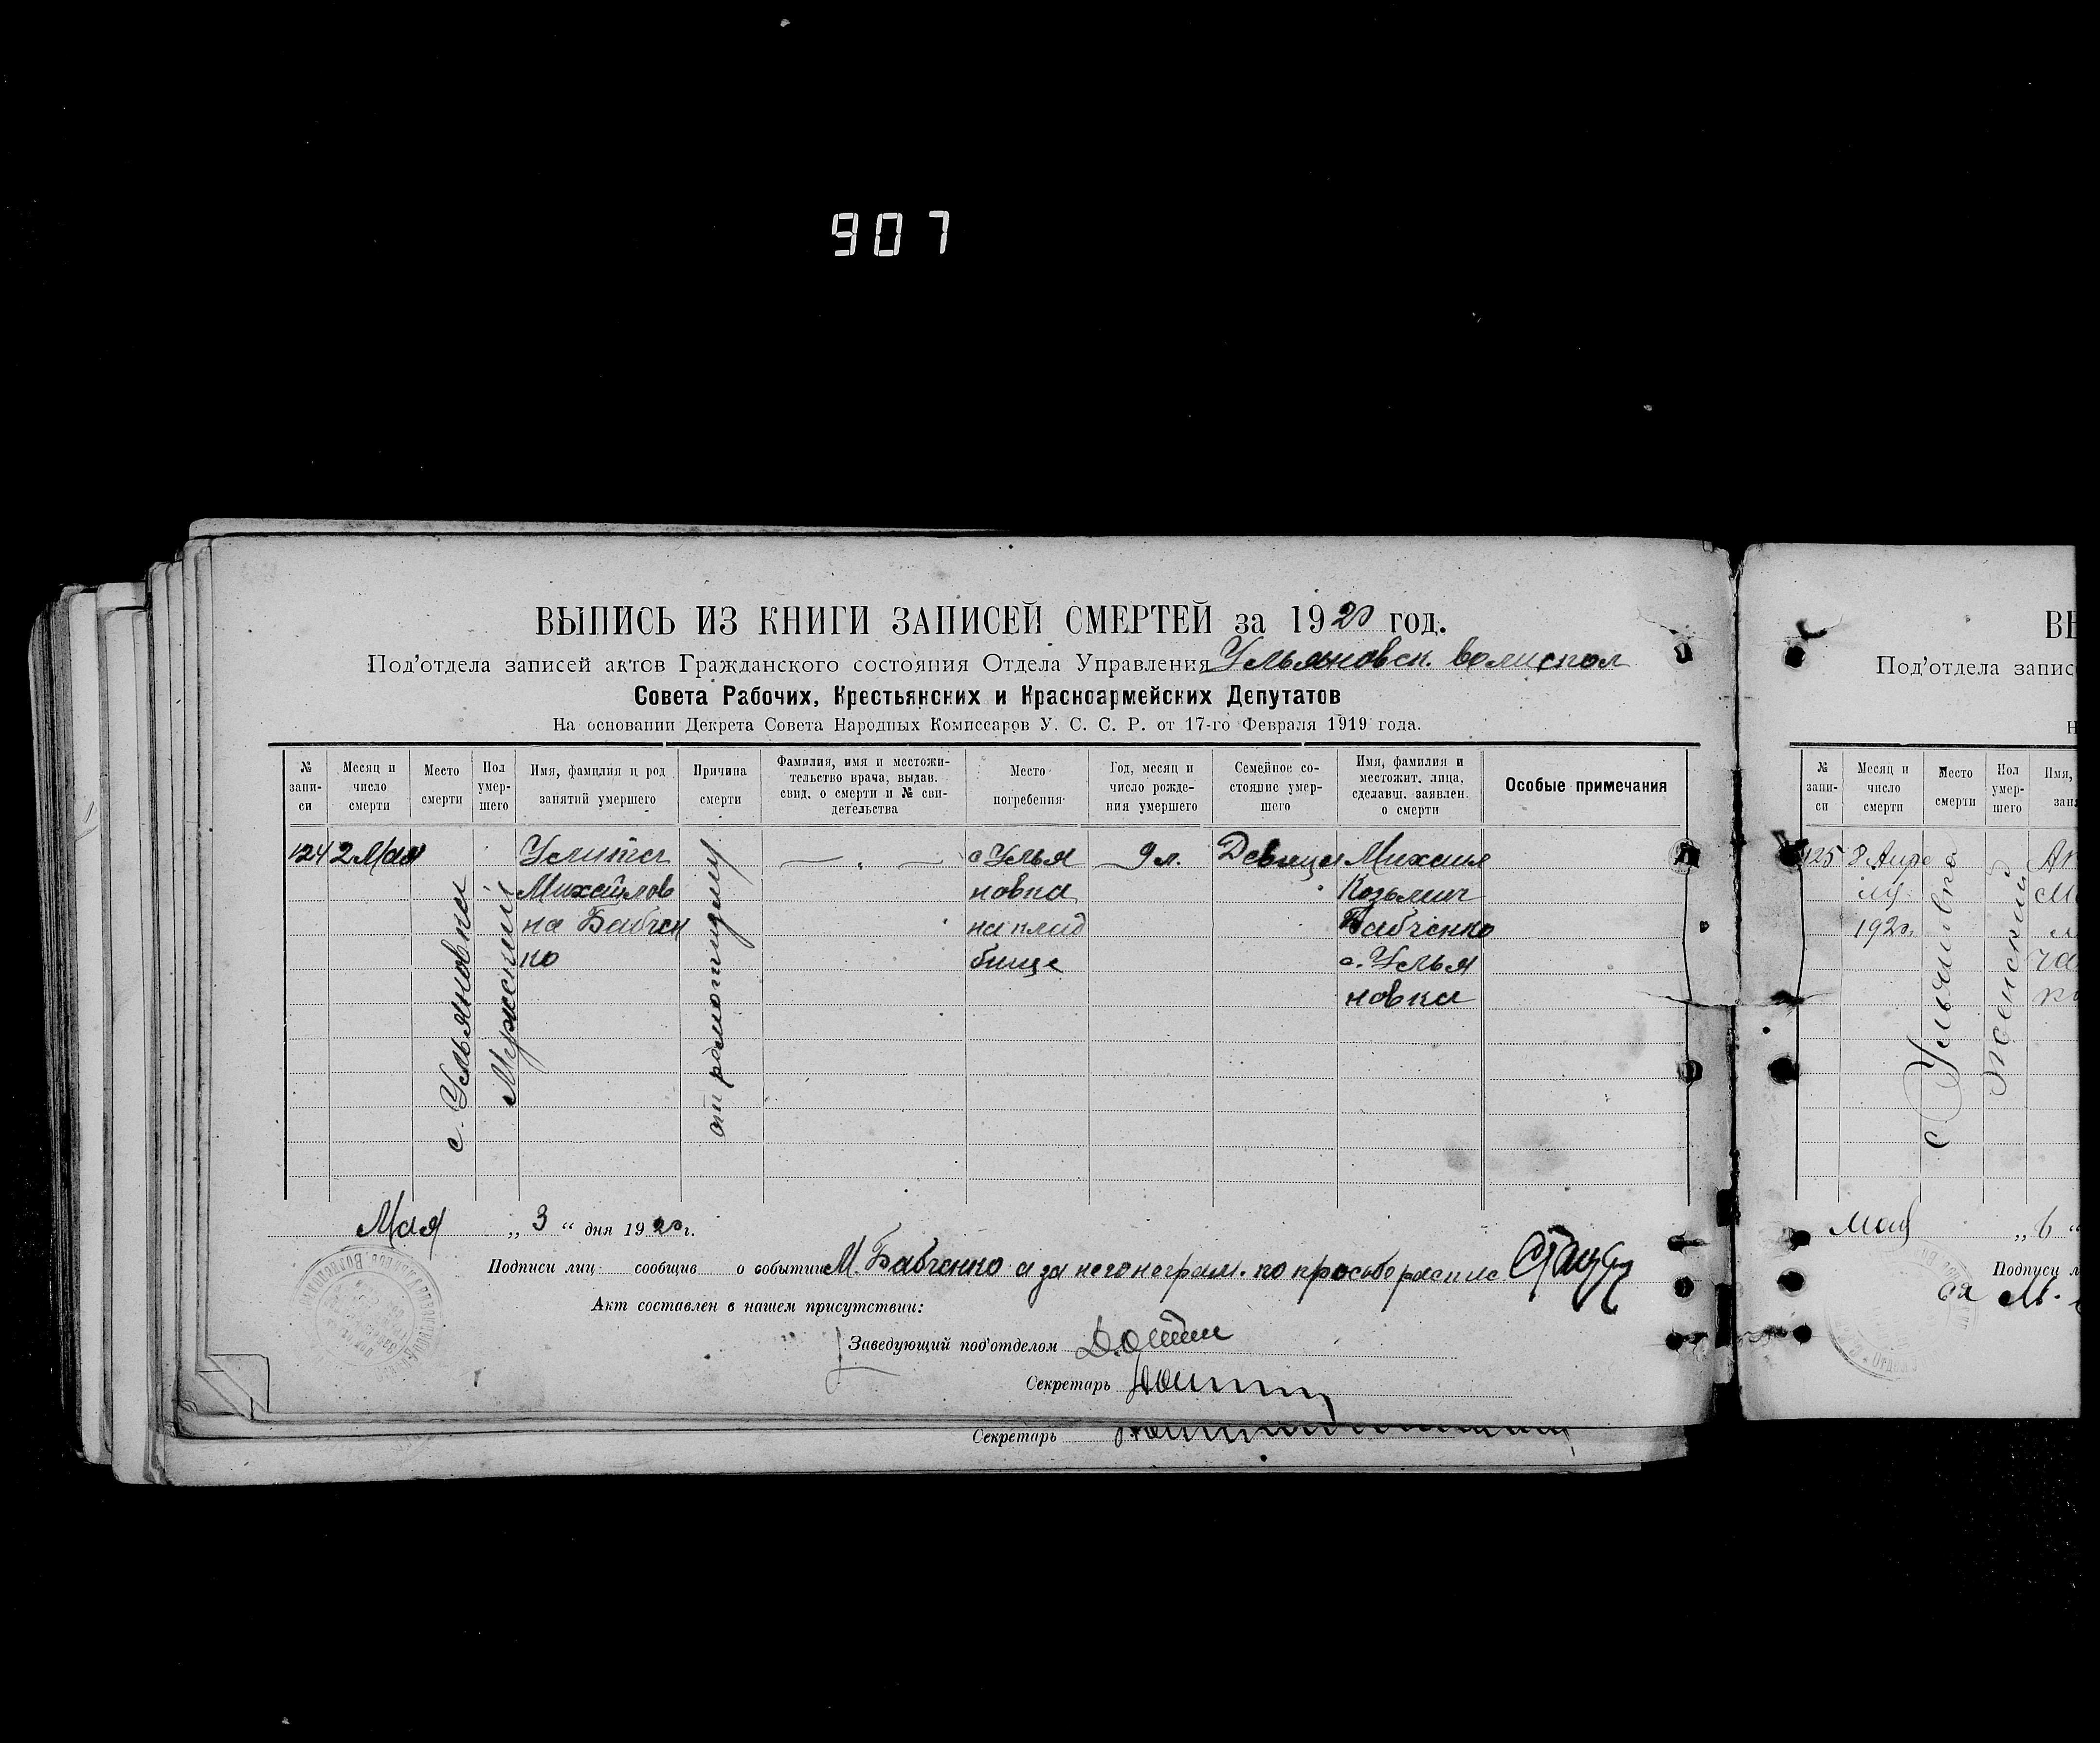 907
ВЫПИСЬ ИЗ КНИГИ ЗАПИСЕЙ СМЕРТЕЙ за 1920 год.
Под'отдела записей актов Гражданского состояния Отдела Управления Ульяновск. волиспол
Совета Рабочих, Крестьянских и Красноармейских Депутатов
На основании Декрета Совета Народных Комиссаров У. С. С. Р. от 17-го Февраля 1919 года.
№ запи-си
Месяц и число смерти
Место смерти
Пол умер-шего
Имя, фамилия и род занятий умершего
Причина смерти
Фамилия, имя и местожи-тельство врача, выдав. свид. о смерти и № сви-детельства
Место погребения
Год, месяц и число рожде-ния умершего
Семейное со-стояние умер-шего
Имя, фамилия и местожит. лица, сделавш. заявлен. о смерти
Особые примечания
124
2 Мая
с. Ульяновка
Мужеский
Улита
Михайлов
на Бабчен
ко
от
с Улья
новка
на клад
бище
9 л.
Девица
Михаил
Козьмич
Бабченко
с. Улья
новка
Мая „ 3 “ дня 1920 г.
Подписи лиц сообщив о событии М. Бабченко а за него неграм. по просьбе распис
Акт составлен в нашем присутствии:
Заведующий под'отделом
Секретарь
Секретарь
ВЫ
Под'отдела запис
Н
№ запи-си
Месяц и число смерти
Место смерти
Пол умер-шего
Имя,
зан
125
8 Апре
192о.
с Ульяновка
Женский
мая „ 6 “
Подписи л